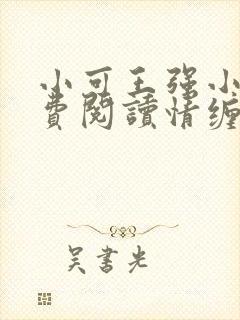 小可王强小
费阅读情缠
吴书光